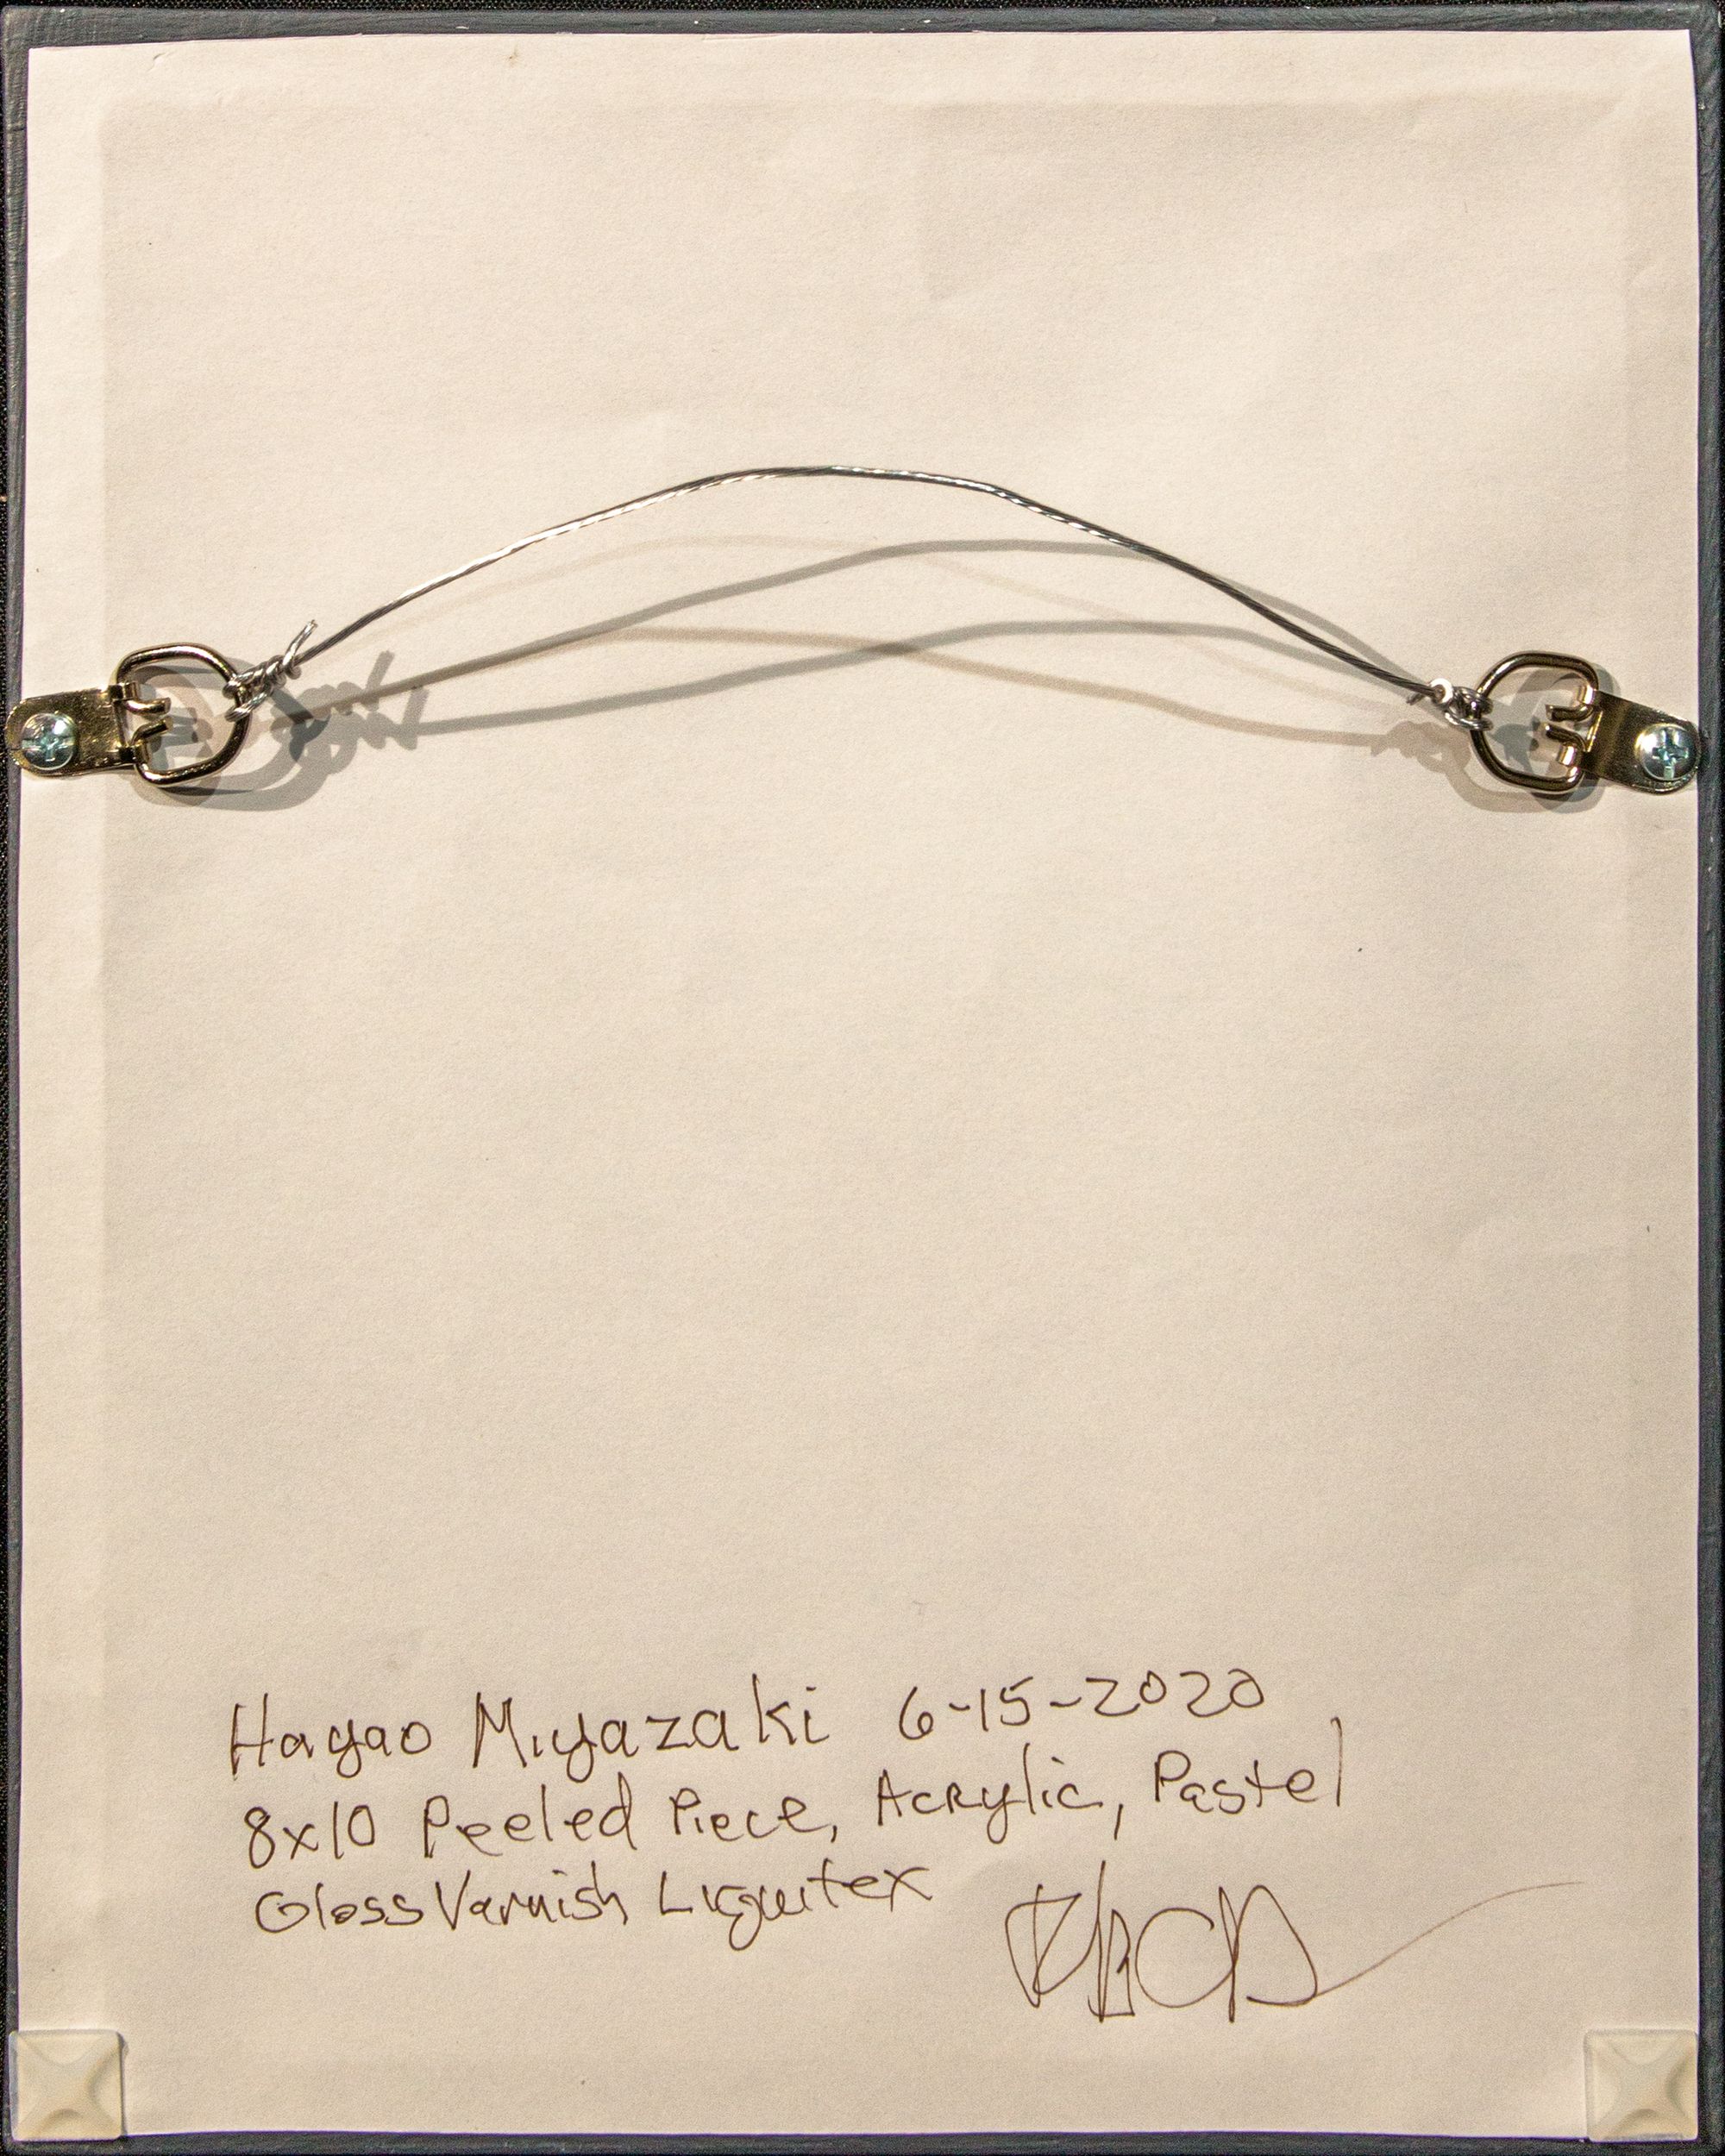 Hayao Miyazaki 6-15-2020
8x10 Peeled Piece, Acrylic, Pastel
Gloss Varnish Liquitex